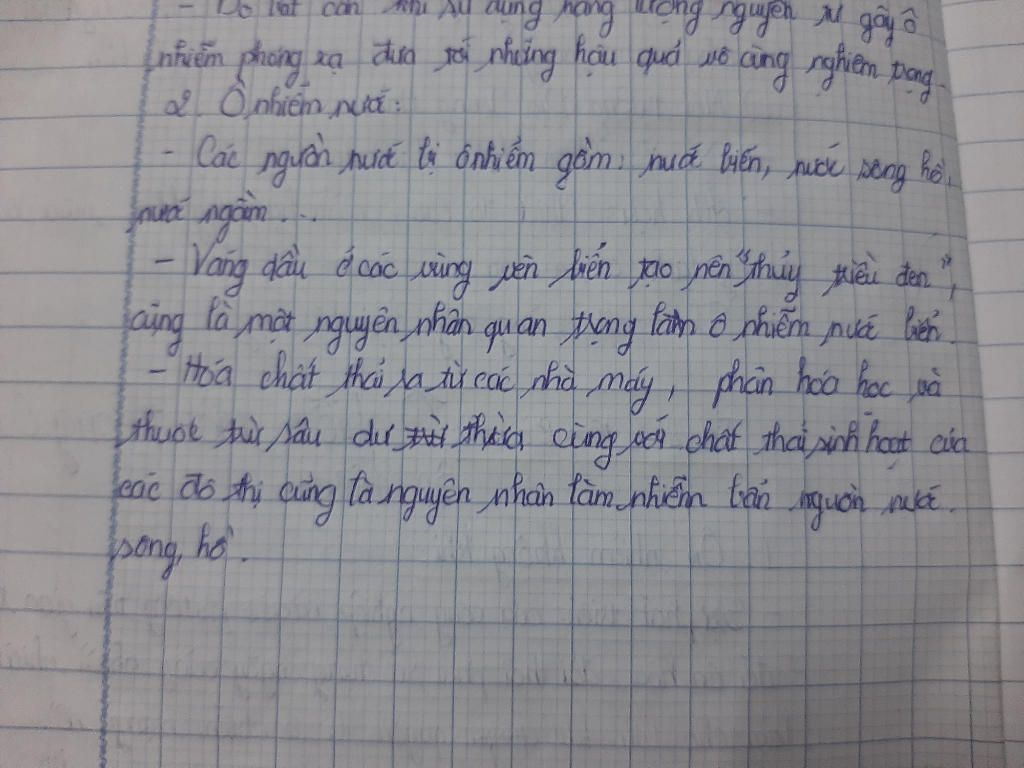 - Do bất cẩn khi sử dụng năng lượng nguyên tử gây ô
nhiễm phóng xạ đưa tới những hậu quả vô cùng nghiêm trọng.
2. Ô nhiễm nước:
- Các nguồn nước bị ô nhiễm gồm: nước biển, nước sông hồ,
nước ngầm...
- Váng dầu ở các vùng ven biển tạo nên "thủy triều đen",
cũng là một nguyên nhân quan trọng làm ô nhiễm nước biển.
- Hóa chất thải ra từ các nhà máy, phân hóa học và
thuốc trừ sâu dư thừa cùng với chất thải sinh hoạt của
các đô thị cũng là nguyên nhân làm nhiễm bẩn nguồn nước.
sông, hồ.